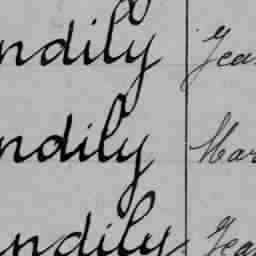 ndily Yea
ndily Mar
ndily Yea